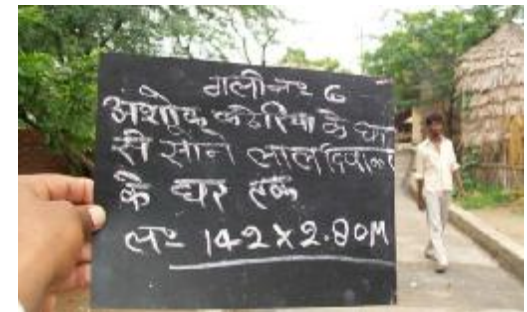 गली नं॰ 6
अशोक कडेरिया के घर
से सोने लाल दिवाकर
के घर तक
ल॰ 142 x 2.80M